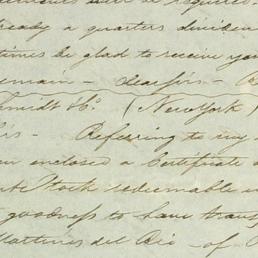 ready a quarters dividen
times be glad to receive you
remain – dear sirs –
chmidt & Co. (New York)
irs – Referring to my
enclosed a Certificate
Stock redeemable in
goodness to have trans
Martinez del Rio – of